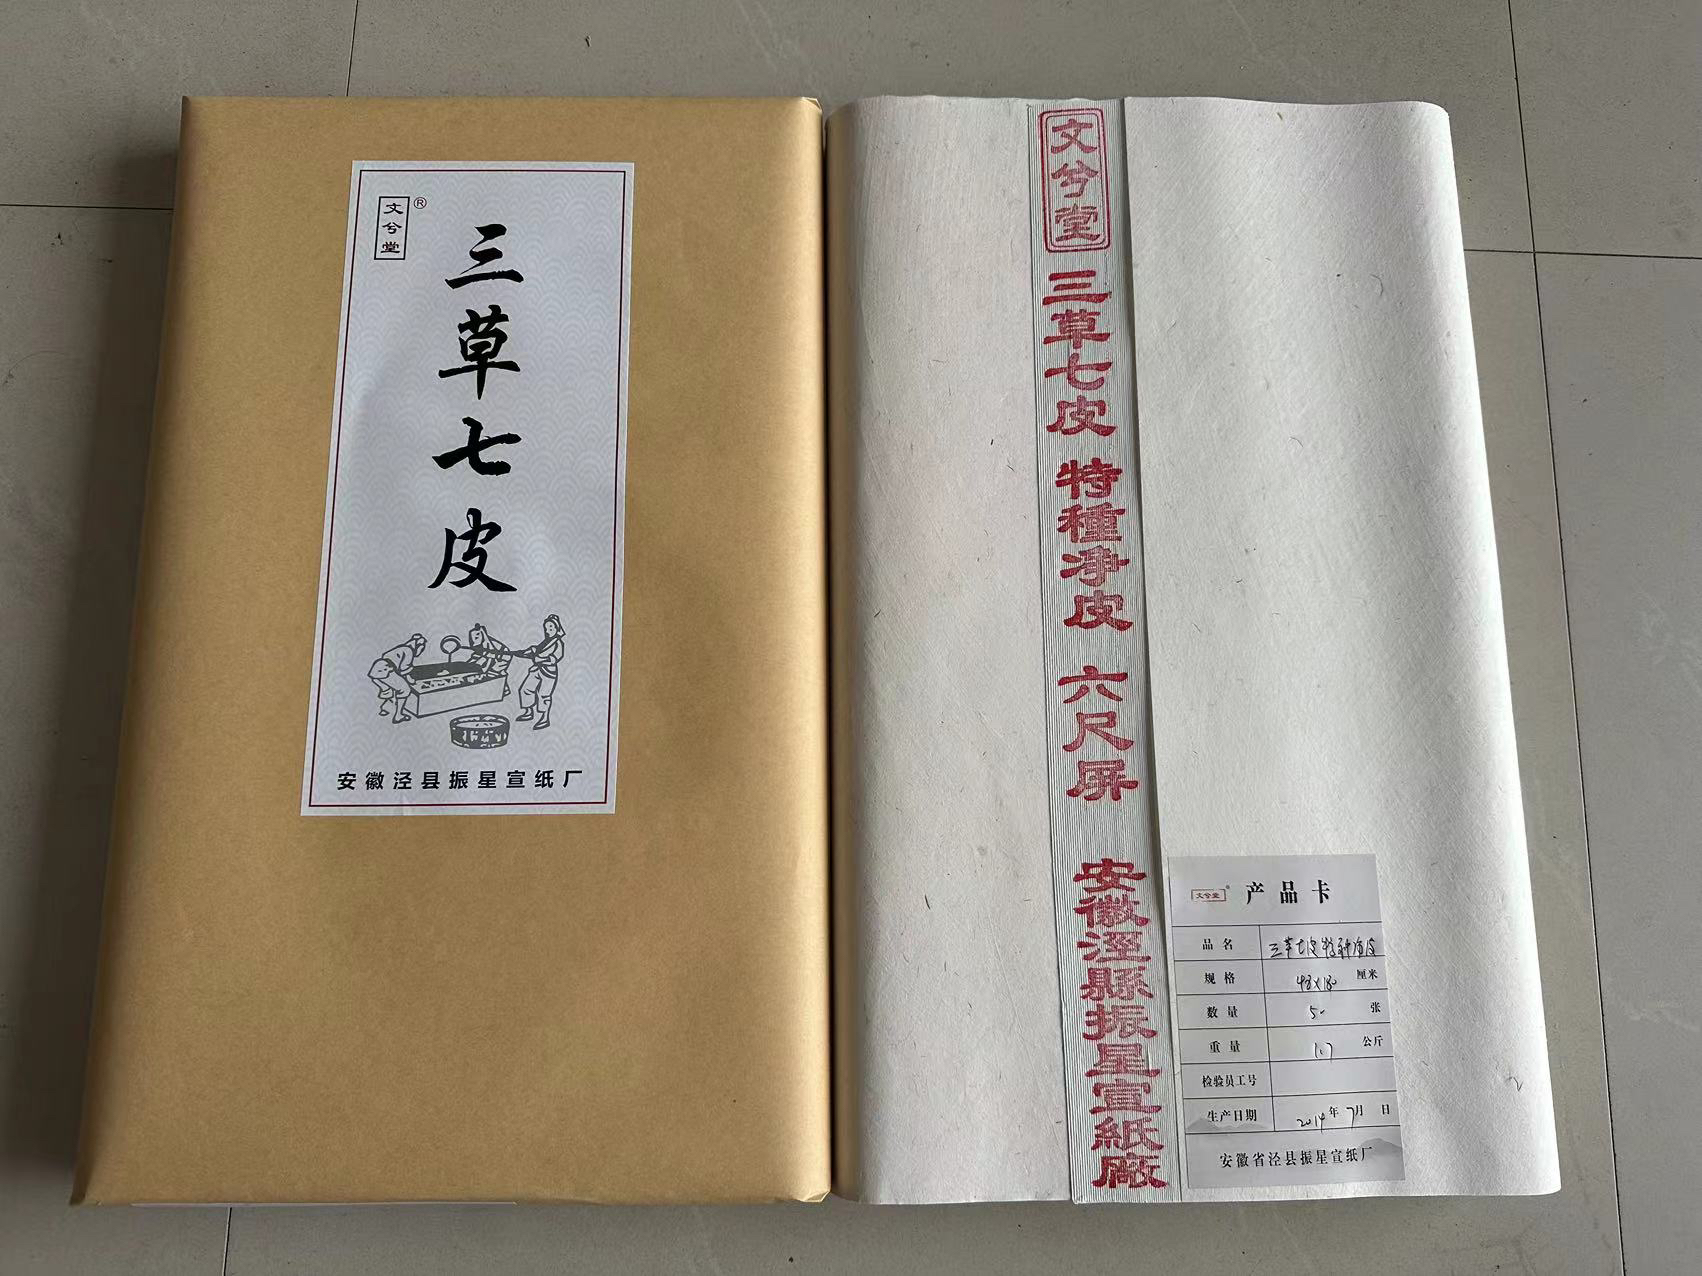 文兮堂®
三草七皮
安徽泾县振星宣纸厂
文兮堂
三草七皮 特種净皮 六尺屏 安徽涇縣振星宣紙廠
文兮堂® 产品卡
品名 三草七皮特种净皮
规格 48×180 厘米
数量 50 张
重量 1.7 公斤
检验员工号
生产日期 2014年7月 日
安徽省泾县振星宣纸厂